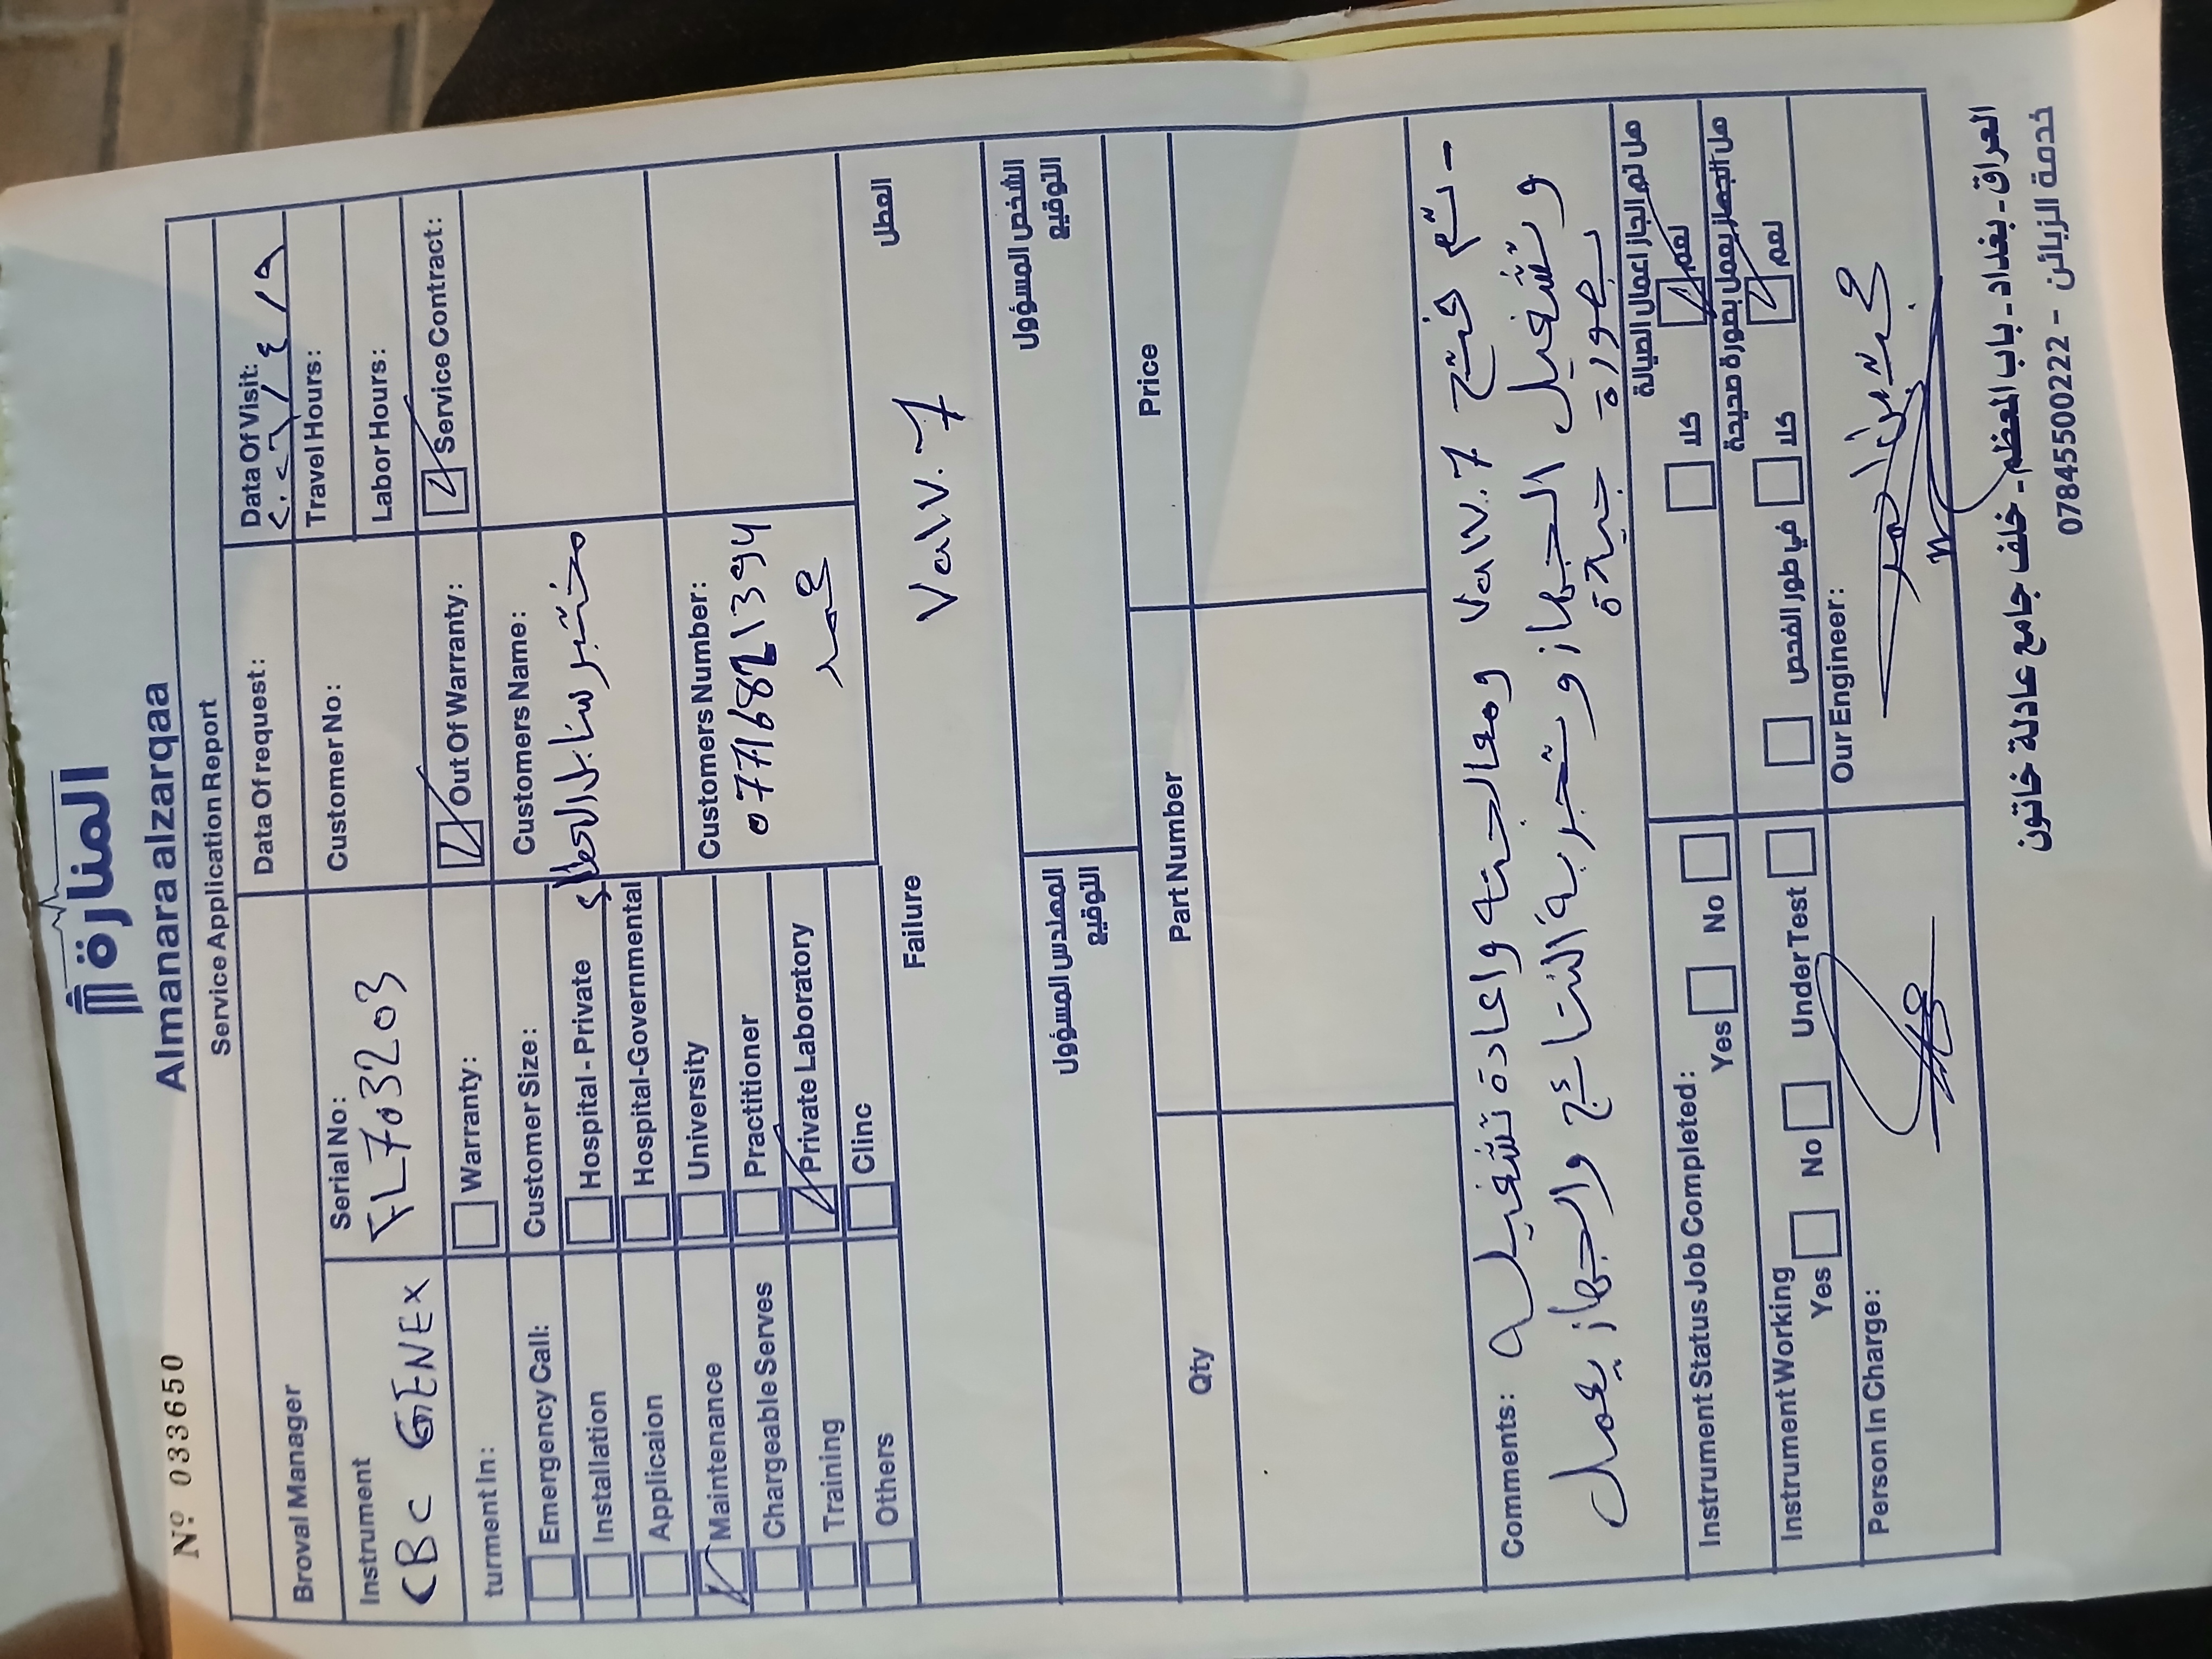 المنارة
Almanara alzarqaa
Nº 033650
Service Application Report
Broval Manager
Data Of request:
Data Of Visit:
٢٠٢٦/٤/٩
Instrument
CBC GENEX
Serial No:
FL703203
Customer No:
Travel Hours:
Labor Hours:
turment In:
Warranty:
Out Of Warranty:
Service Contract:
Emergency Call:
Customer Size:
Customers Name:
مختبر سنابل الحياة
Installation
Hospital - Private
Applicaion
Hospital-Governmental
Maintenance
University
Customers Number:
07716821394
محمد
Chargeable Serves
Practitioner
Training
Private Laboratory
Others
Clinc
Failure
العطل
Valv. 7
المهندس المسؤول
التوقيع
الشخص المسؤول
التوقيع
Qty
Part Number
Price
Comments:
- تم فتح Valv. 7 ومعالجته واعادة تشغيله
وتشغيل الجهاز وتجربة النتائج والجهاز يعمل
بصورة جيدة
Instrument Status Job Completed:
Yes
No
هل تم انجاز اعمال الصيانة
كلا
نعم
Instrument Working
Yes
No
Under Test
هل الجهاز يعمل بصورة صحيحة
في طور الفحص
كلا
نعم
Person In Charge:
Our Engineer:
العراق - بغداد - باب المعظم - خلف جامع عادلة خاتون
خدمة الزبائن - 07845500222